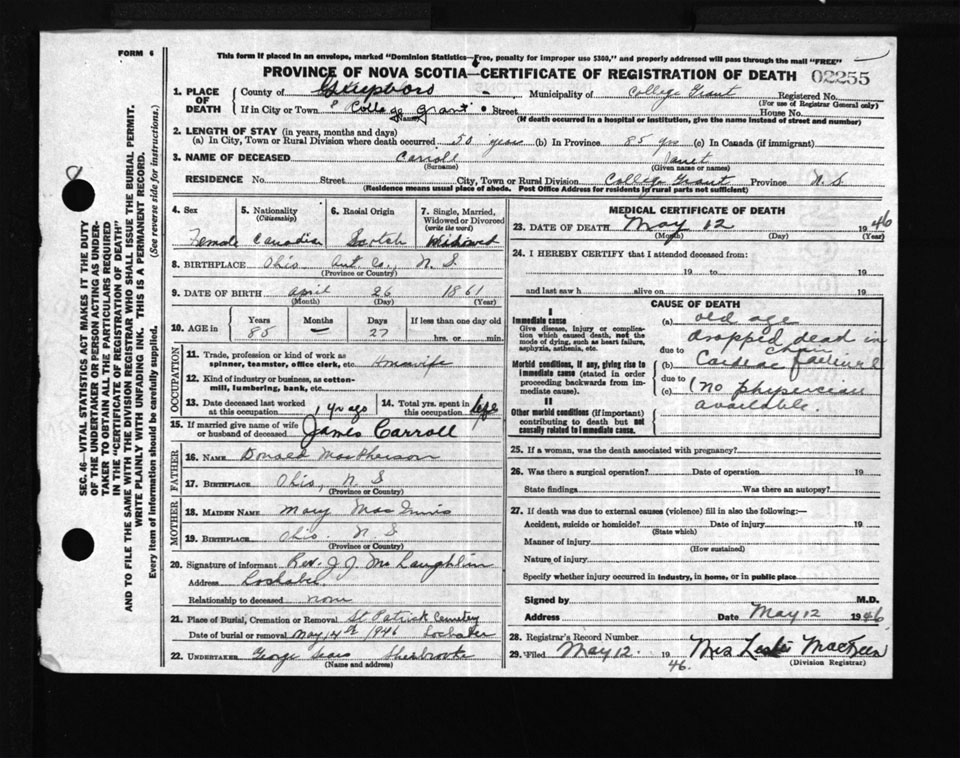 FORM 6
This form if placed in an envelope, marked "Dominion Statistics—Free, penalty for improper use $300," and properly addressed will pass through the mail "FREE"
PROVINCE OF NOVA SCOTIA—CERTIFICATE OF REGISTRATION OF DEATH 02255
1. PLACE OF DEATH
County of Guysboro Municipality of College Grant Registered No.
(For use of Registrar General only)
If in City or Town College Grant Street House No.
(Name) (If death occurred in a hospital or institution, give the name instead of street and number)
2. LENGTH OF STAY (in years, months and days)
(a) In City, Town or Rural Division where death occurred 50 years (b) In Province 85 yrs (c) In Canada (if immigrant)
3. NAME OF DECEASED Carroll Janet
(Surname) (Given name or names)
RESIDENCE No. Street City, Town or Rural Division College Grant Province N. S.
(Residence means usual place of abode. Post Office Address for residents in rural parts not sufficient)
4. Sex 5. Nationality (Citizenship) 6. Racial Origin 7. Single, Married, Widowed or Divorced (write the word)
Female Canadian Scotch Widowed
8. BIRTHPLACE Ohio Ant. Co. N. S.
(Province or Country)
9. DATE OF BIRTH April 26 1861
(Month) (Day) (Year)
10. AGE in Years Months Days If less than one day old
85 — 27 hrs. or min.
OCCUPATION
11. Trade, profession or kind of work as spinner, teamster, office clerk, etc. Housewife
12. Kind of industry or business, as cotton-mill, lumbering, bank, etc.
13. Date deceased last worked at this occupation 1 yr ago 14. Total yrs. spent in this occupation life
15. If married give name of wife or husband of deceased James Carroll
FATHER
16. NAME Donald MacPherson
17. BIRTHPLACE Ohio, N. S
(Province or Country)
MOTHER
18. MAIDEN NAME Mary MacInnis
19. BIRTHPLACE Ohio. N. S
(Province or Country)
20. Signature of informant Rev. J. J. McLaughlin
Address Lochaber
Relationship to deceased none
21. Place of Burial, Cremation or Removal St Patrick Cemetery
Date of burial or removal May 14th 1946 Lochaber
22. UNDERTAKER George Sears Sherbrooke
(Name and address)
MEDICAL CERTIFICATE OF DEATH
23. DATE OF DEATH May 12 1946
(Month) (Day) (Year)
24. I HEREBY CERTIFY that I attended deceased from:
19 to 19
and last saw h alive on 19
CAUSE OF DEATH
I
Immediate cause
Give disease, injury or complication which caused death, not the mode of dying, such as heart failure, asphyxia, asthenia, etc.
(a) old age
dropped dead in chair
due to
Morbid conditions, if any, giving rise to immediate cause (stated in order proceeding backwards from immediate cause).
(b) Cardiac failure
due to
(c) (no physician available.
II
Other morbid conditions (if important) contributing to death but not causally related to immediate cause.
25. If a woman, was the death associated with pregnancy?
26. Was there a surgical operation? Date of operation 19
State findings Was there an autopsy?
27. If death was due to external causes (violence) fill in also the following:—
Accident, suicide or homicide? Date of injury 19
(State which)
Manner of injury
(How sustained)
Nature of injury
Specify whether injury occurred in industry, in home, or in public place
Signed by M.D.
Address Date May 12 1946
28. Registrar's Record Number
29. Filed May 12. 1946. Mrs Leslie MacKeen
(Division Registrar)
SEC. 46—VITAL STATISTICS ACT MAKES IT THE DUTY
OF THE UNDERTAKER OR PERSON ACTING AS UNDER-
TAKER TO OBTAIN ALL THE PARTICULARS REQUIRED
IN THE "CERTIFICATE OF REGISTRATION OF DEATH"
AND TO FILE THE SAME WITH THE DIVISION REGISTRAR WHO SHALL ISSUE THE BURIAL PERMIT.
WRITE PLAINLY WITH UNFADING INK. THIS IS A PERMANENT RECORD.
Every item of information should be carefully supplied. (See reverse side for instructions.)